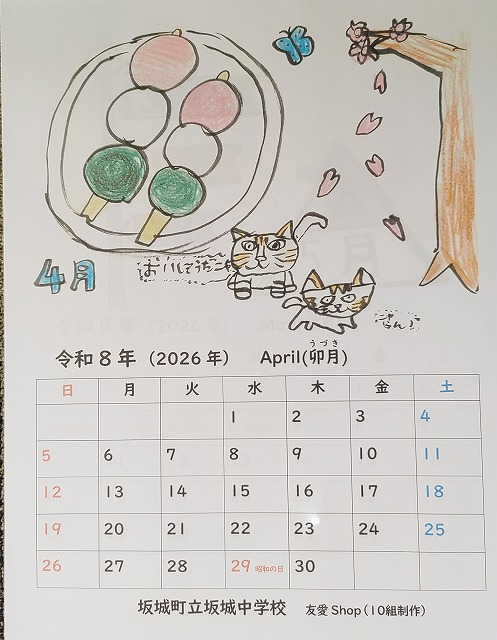 4月
令和8年（2026年） April(卯月)
うづき
日 月 火 水 木 金 土
1 2 3 4
5 6 7 8 9 10 11
12 13 14 15 16 17 18
19 20 21 22 23 24 25
26 27 28 29 昭和の日 30
坂城町立坂城中学校 友愛Shop（10組制作）